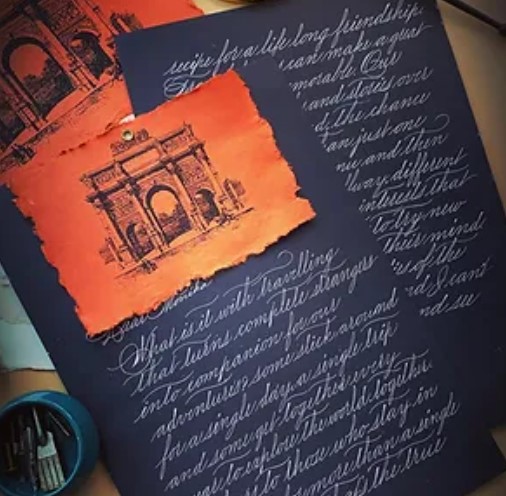 recipe for a life long friendship
can make a great
memorable. Our
and stories over
the chance
than just one
me and then
way different
interests that
to try new
their mind
of the
I can't
and see
What is it with travelling
that turns complete strangers
into companion for our
adventures? some stick around
for a single day, a single trip
and some get together every
year to explore the world together.
to those who stay in
for more than a single
the true